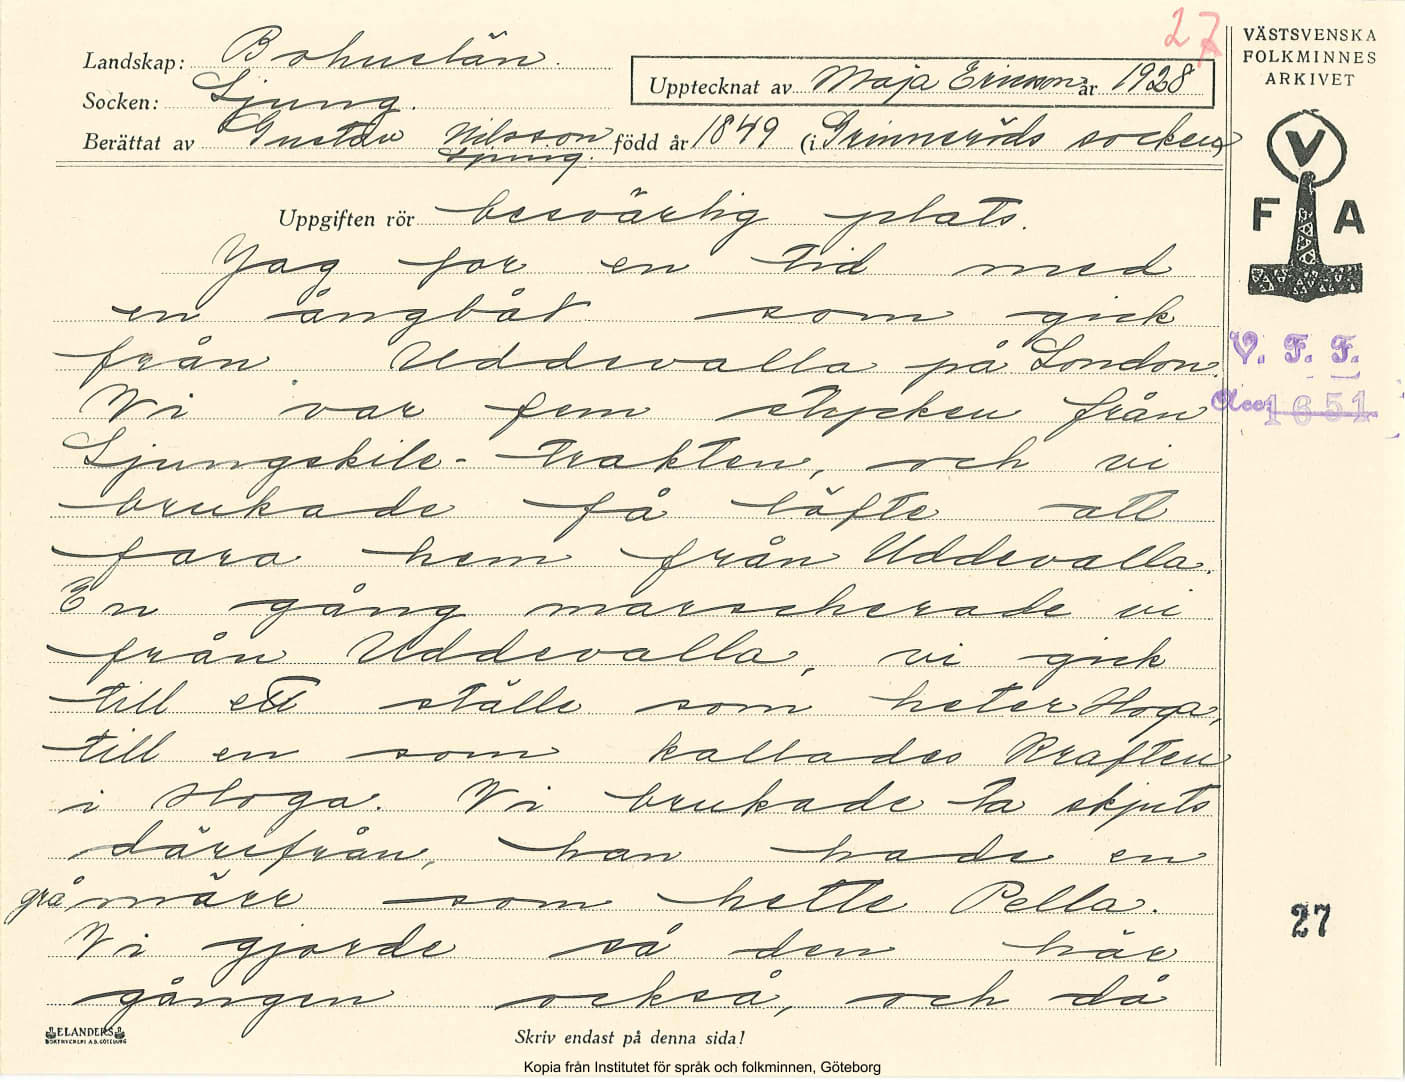 27
VÄSTSVENSKA
FOLKMINNES
ARKIVET
Landskap: Bohuslän.
Socken: Ljung.
Upptecknat av Maja Ericson år 1928
Berättat av Gustav Nilsson född år 1849 (i Grinneröds socken)
Ljung.
V
F A
Uppgiften rör besvärlig plats.
Jag for en tid med
en ångbåt som gick
från Uddevalla på London.
Vi var fem stycken från
Ljungskile-trakten, och vi
brukade få löfte att
fara hem från Uddevalla.
En gång marscherade vi
från Uddevalla, vi gick
till ett ställe som heter Hoga,
till en som kallades Kraften
i Hoga. Vi brukade ta skjuts
därifrån, han hade en
grå märr som hette Pella.
Vi gjorde så den här
gången också, och då
V. F. F.
Acc. 1651
27
ELANDERS
BOKTRYCKERI A.B. GÖTEBORG
Skriv endast på denna sida!
Kopia från Institutet för språk och folkminnen, Göteborg